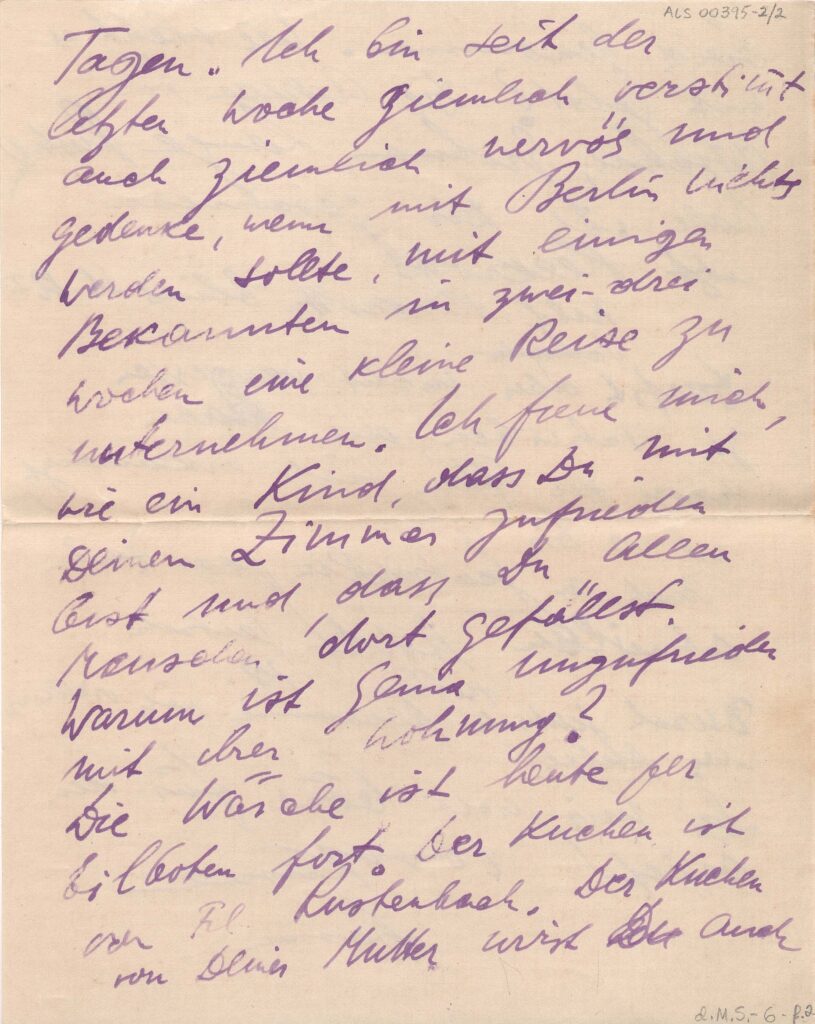 ALS 00395-2/2
Tagen. Ich bin seit der
letzten Woche ziemlich verstimt
auch ziemlich nervös und
gedenke, wenn mit Berlin nichts
werden sollte, mit einigen
Bekannten in zwei-drei
Wochen eine kleine Reise zu
unternehmen. Ich freue mich,
wie ein Kind, dass Du mit
Deinem Zimmer zufrieden
bist und, dass Du Allen
Menschen dort gefällst.
Warum ist Genia unzufrieden
mit ihrer Wohnung?
Die Wäsche ist heute per
Eilboten fort. Der Kuchen ist
von Frl Lustenbach. Der Kuchen
von Deiner Mutter wirst Du auch